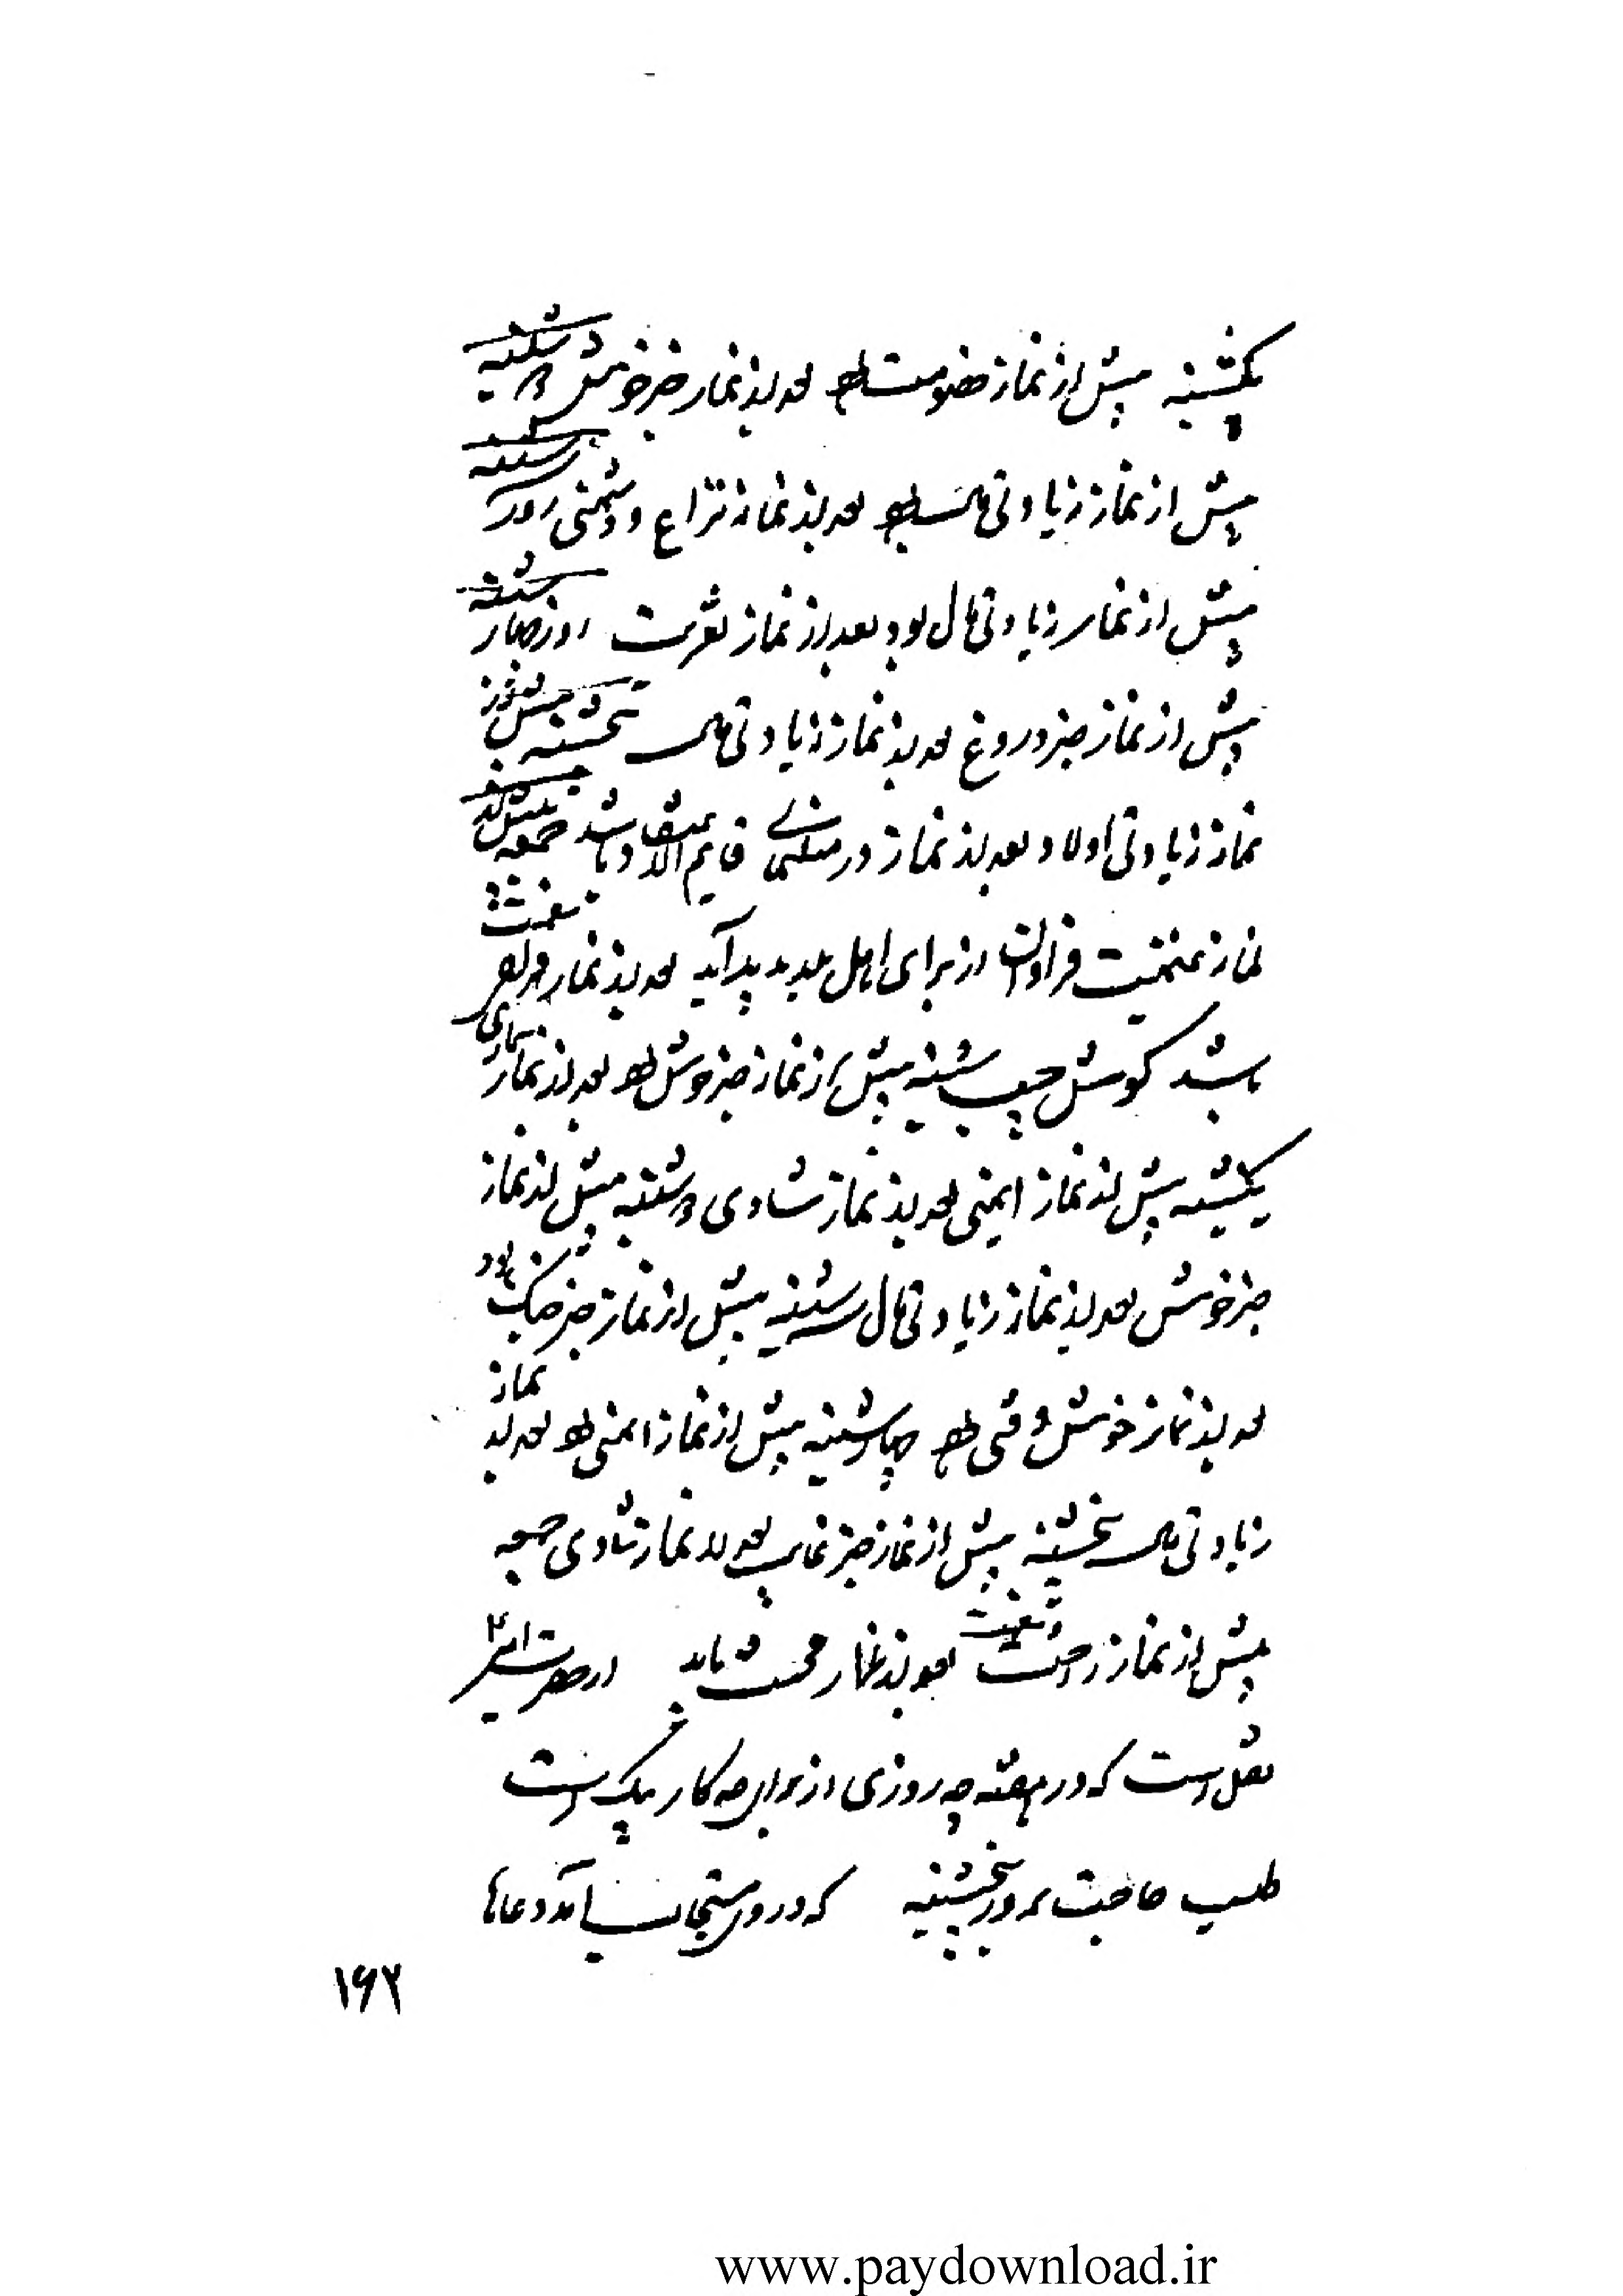 یکشنبه پیش از نماز خصومت بود بعد از نماز خبر خوش دوشنبه
پیش از نماز زیادتی مال بود بعد از نماز نزاع و دشمنی روز سه شنبه
پیش از نماز زیادتی مال بود بعد از نماز روز چهارشنبه
پیش از نماز خبر دروغ بعد از نماز زیادتی مال پنجشنبه پیش از
نماز زیادتی اولاد بعد از نماز در باشد جمعه پیش از
نماز منفعت فراوان از برای اهل پدید آید بعد از نماز
باشد گوش چپ شنبه پیش از نماز خبر خوش بود بعد از نماز
یکشنبه پیش از نماز ایمنی بعد از نماز شادی دوشنبه پیش از نماز
خبر خوش بعد از نماز زیادتی مال سه شنبه پیش از نماز خبر جنگ بود
بعد از نماز خوش وقتی بود چهارشنبه پیش از نماز ایمنی بود بعد از نماز
زیادتی مال پنجشنبه پیش از نماز خبر غایب بعد از نماز شادی جمعه
پیش از نماز بعد از نماز از حضرت امیر
نقل است که در هفته چه روزی از برای چه کار نیک است
طلب حاجت بروز پنجشنبه که در وی مستجاب آمد دعاها
۱۶۲
www.paydownload.ir